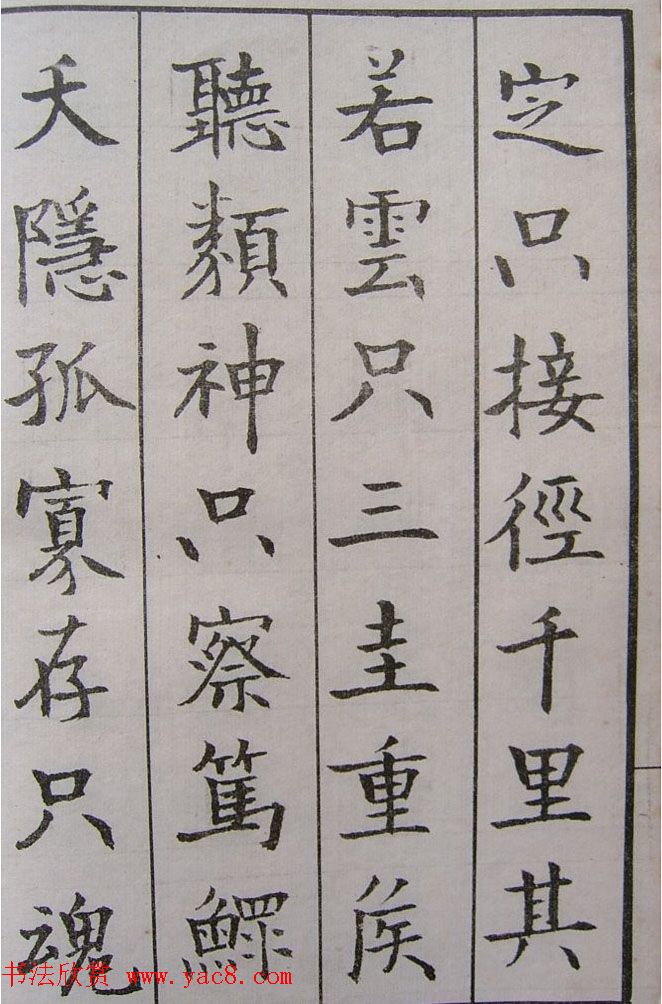 定只接徑千里其
若雲只三圭重侯
聽類神只察篤
夭隱孤寡存只魂
书法欣赏 www.yac8.com